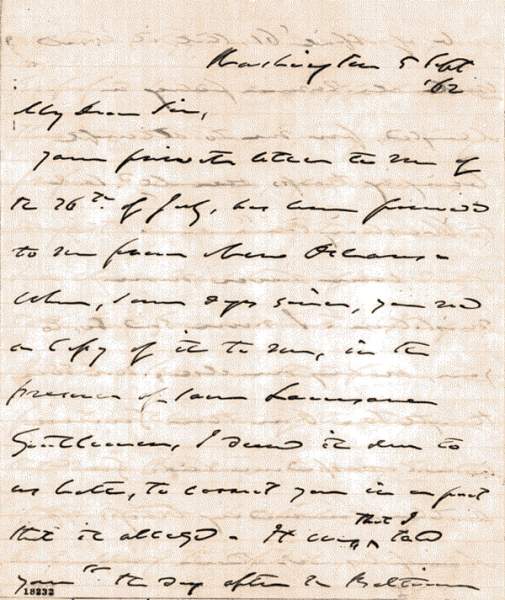 Washington 5 Sept
'62
My Dear Sir,
Your private letter to me of
the 26th. of July, has been forwarded
to me from New Orleans -
When, some days since, you read
a copy of it to me, in the
presence of some Louisiana
Gentlemen, I deemed it due to
us both, to correct you in a part
that it alleged - It was, that I told
you "the day after the Baltimore
18232